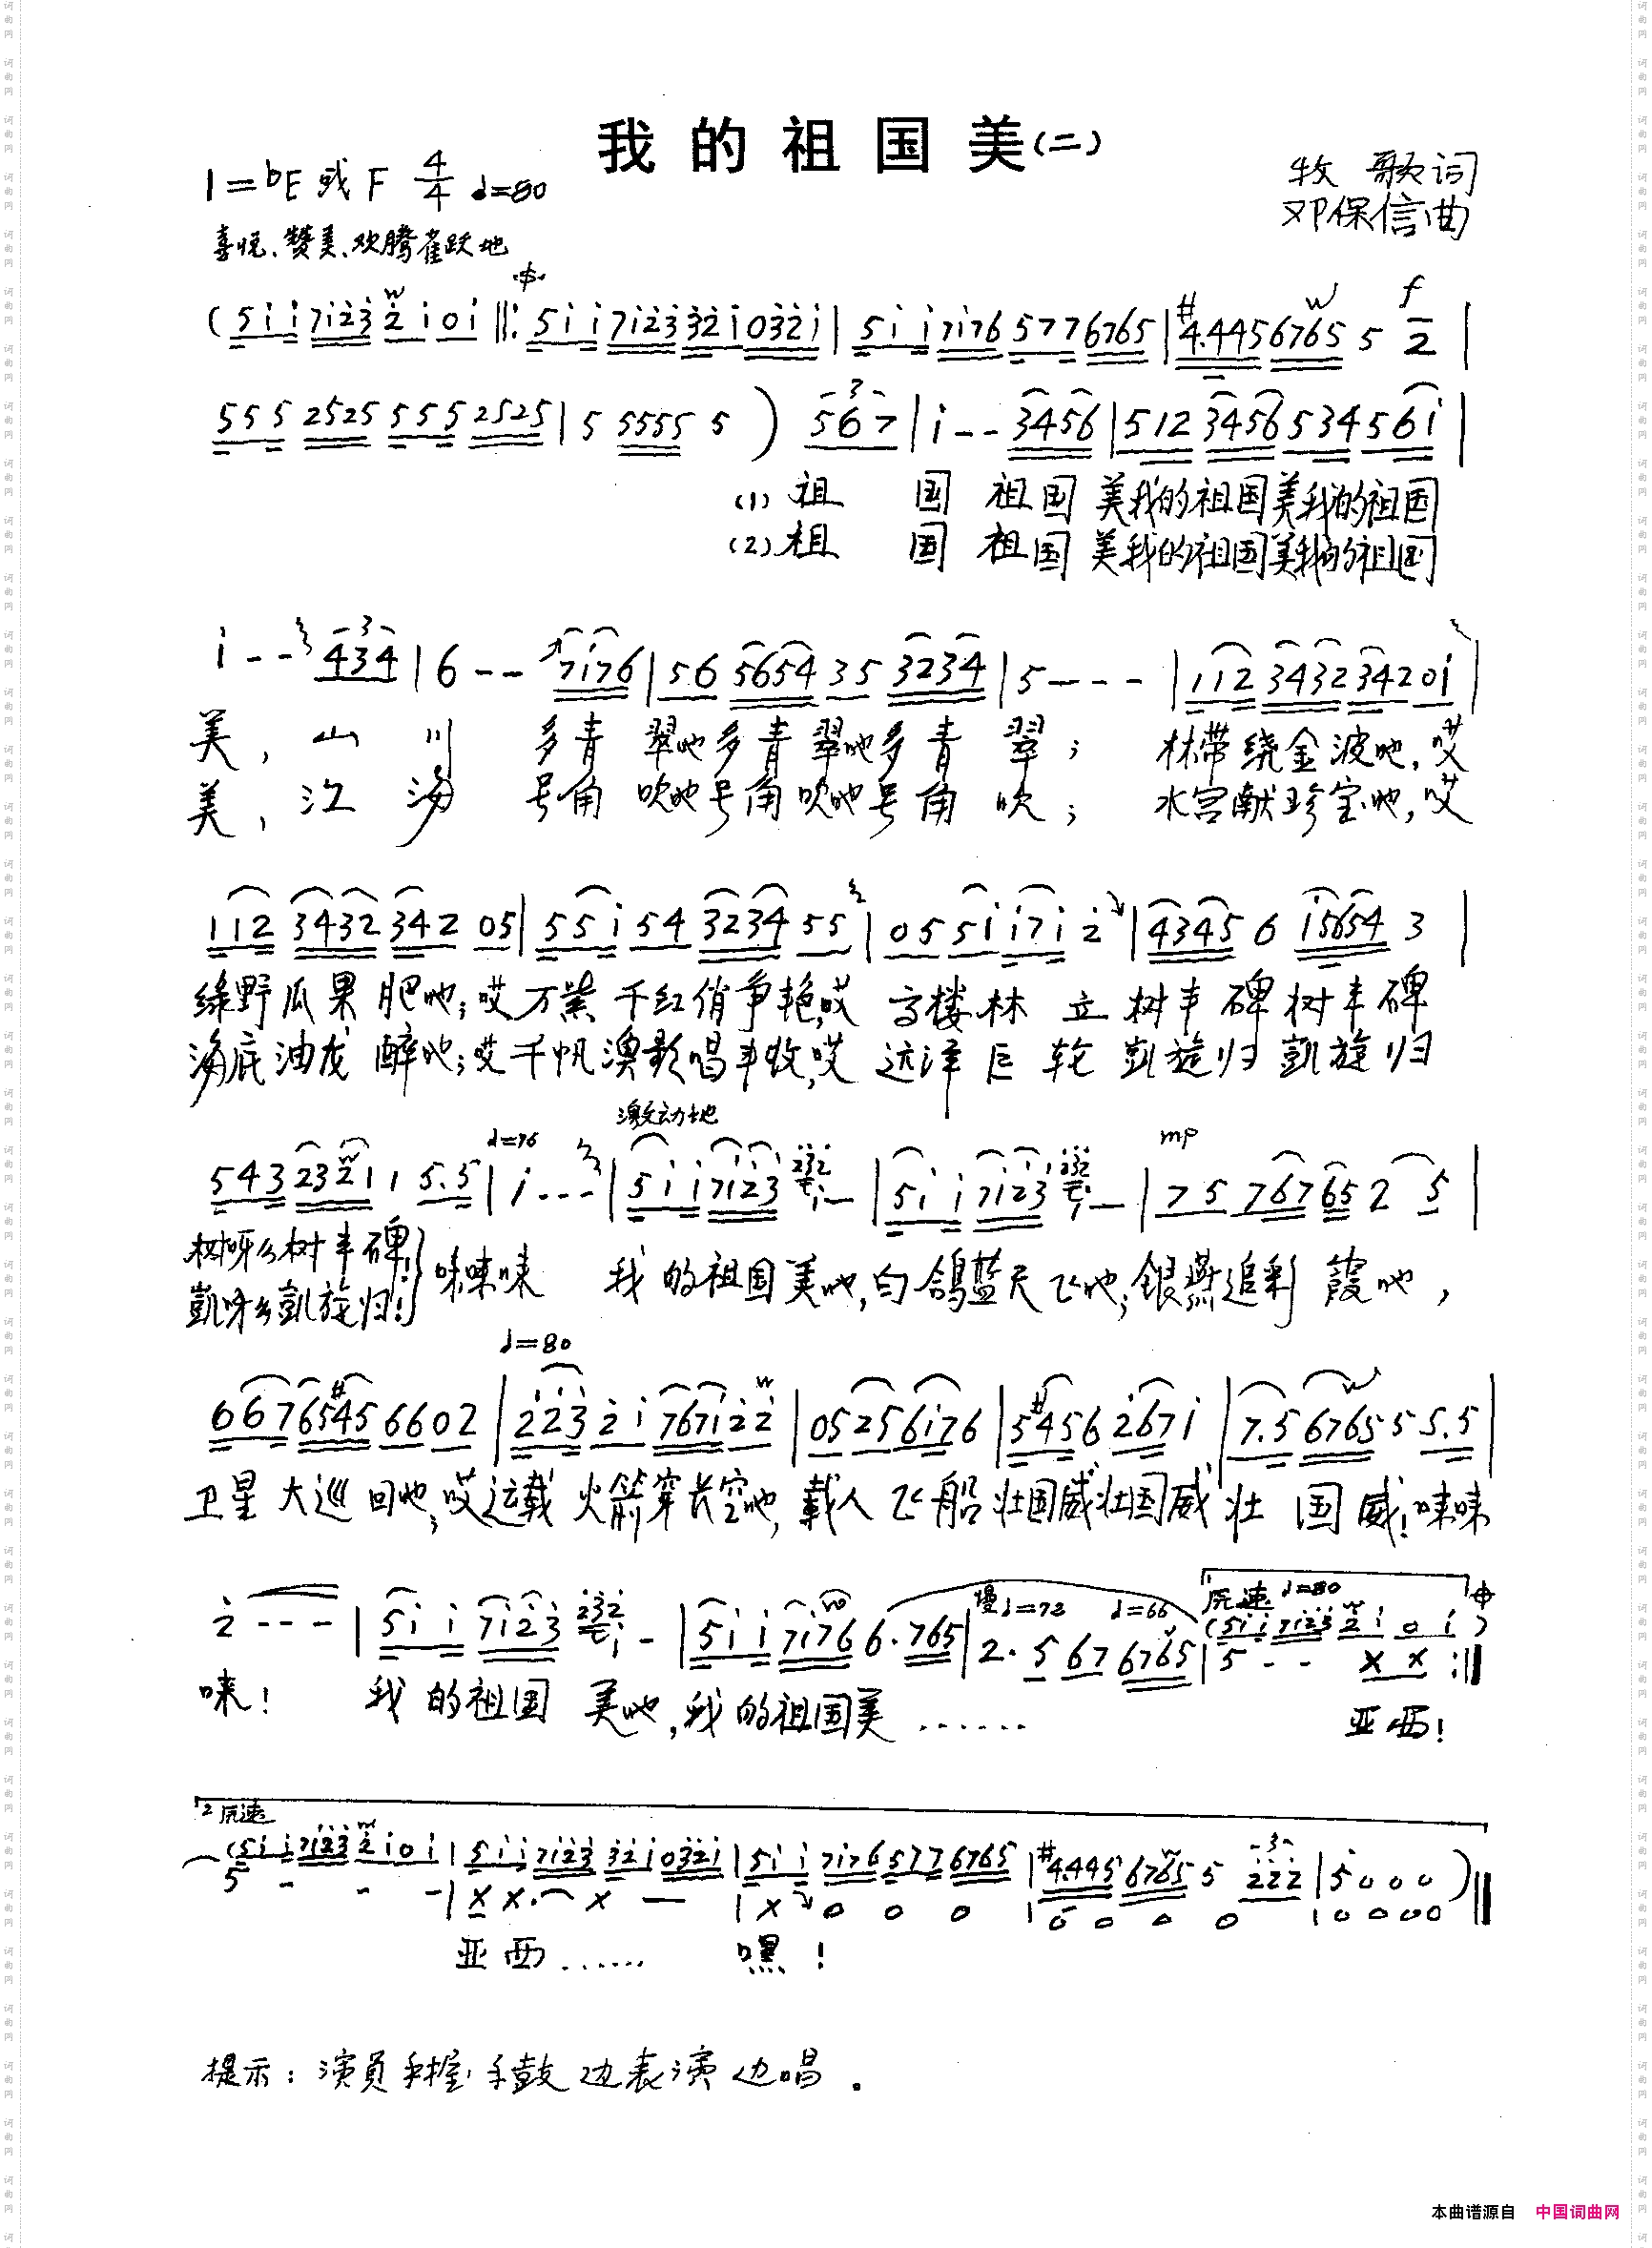 我的祖国美(二)
1=bE或F 4/4 ♩=80
牧歌词
邓保信曲
喜悦、赞美、欢腾雀跃地
(5ii 7i23 2i 0i ‖: 5ii 7i23 32i 032i | 5ii 7i76 577 6765 | #4.445 6765 5 2 |
f
555 2525 555 2525 | 5 5555 5 ) 567 | i-- 3456 | 512 3456 534 56i |
(1)祖 国 祖国 美我的祖国美我的祖国
(2)祖 国 祖国 美我的祖国美我的祖国
i-- 434 | 6-- 7i76 | 56 5654 35 3234 | 5--- | 112 3432 342 0i |
美,山川 多青翠吔多青翠吔多青翠; 林带绕金波吔,哎
美,江海 号角吹吔号角吹吔号角吹; 水宫献珍宝吔,哎
112 3432 342 05 | 55i 54 3234 55 | 05 5i i7i 2 | 4345 6 i5654 3 |
绿野瓜果肥吔;哎万紫千红俏争艳,哎 高楼林立树丰碑树丰碑
海底油龙醉吔;哎千帆渔歌唱丰收,哎 远洋巨轮凯旋归凯旋归
♩=76 激动地 mp
543 2321 1 5.5 | i--- | 5ii 7i23 232 i- | 5ii 7i23 232 i- | 75 767 65 2 5 |
树呀么树丰碑! 咪咪咪 我的祖国美吔,白鸽蓝天飞吔;银燕追彩霞吔,
凯呀么凯旋归!
♩=80
667 6545 66 02 | 223 2i 767i 22 | 05 25 6i76 | 5#456 267i | 7.5 6765 5 5.5 |
卫星大巡回吔;哎运载火箭穿长空吔,载人飞船壮国威壮国威壮国威!咪咪
2--- | 5ii 7i23 232 i- | 5ii 7i76 6.765 | 慢♩=72 ♩=66 2.5 67 6765 | 1 原速 ♩=80 (5ii 7i23 2i 0 i)
5-- X X :‖
咪! 我的祖国美吔,我的祖国美…… 亚西!
2 原速
(5ii 7i23 2i 0i | 5ii 7i23 32i 032i | 5ii 7i76 577 6765 | #4.445 6765 5 222 | 5000 )
5 - - - | X X. X — | X 0 0 0 | 0 0 0 0 | 0 0 0 0 ‖
亚西…… 嘿!
提示:演员手握手鼓边表演边唱。
本曲谱源自 中国词曲网